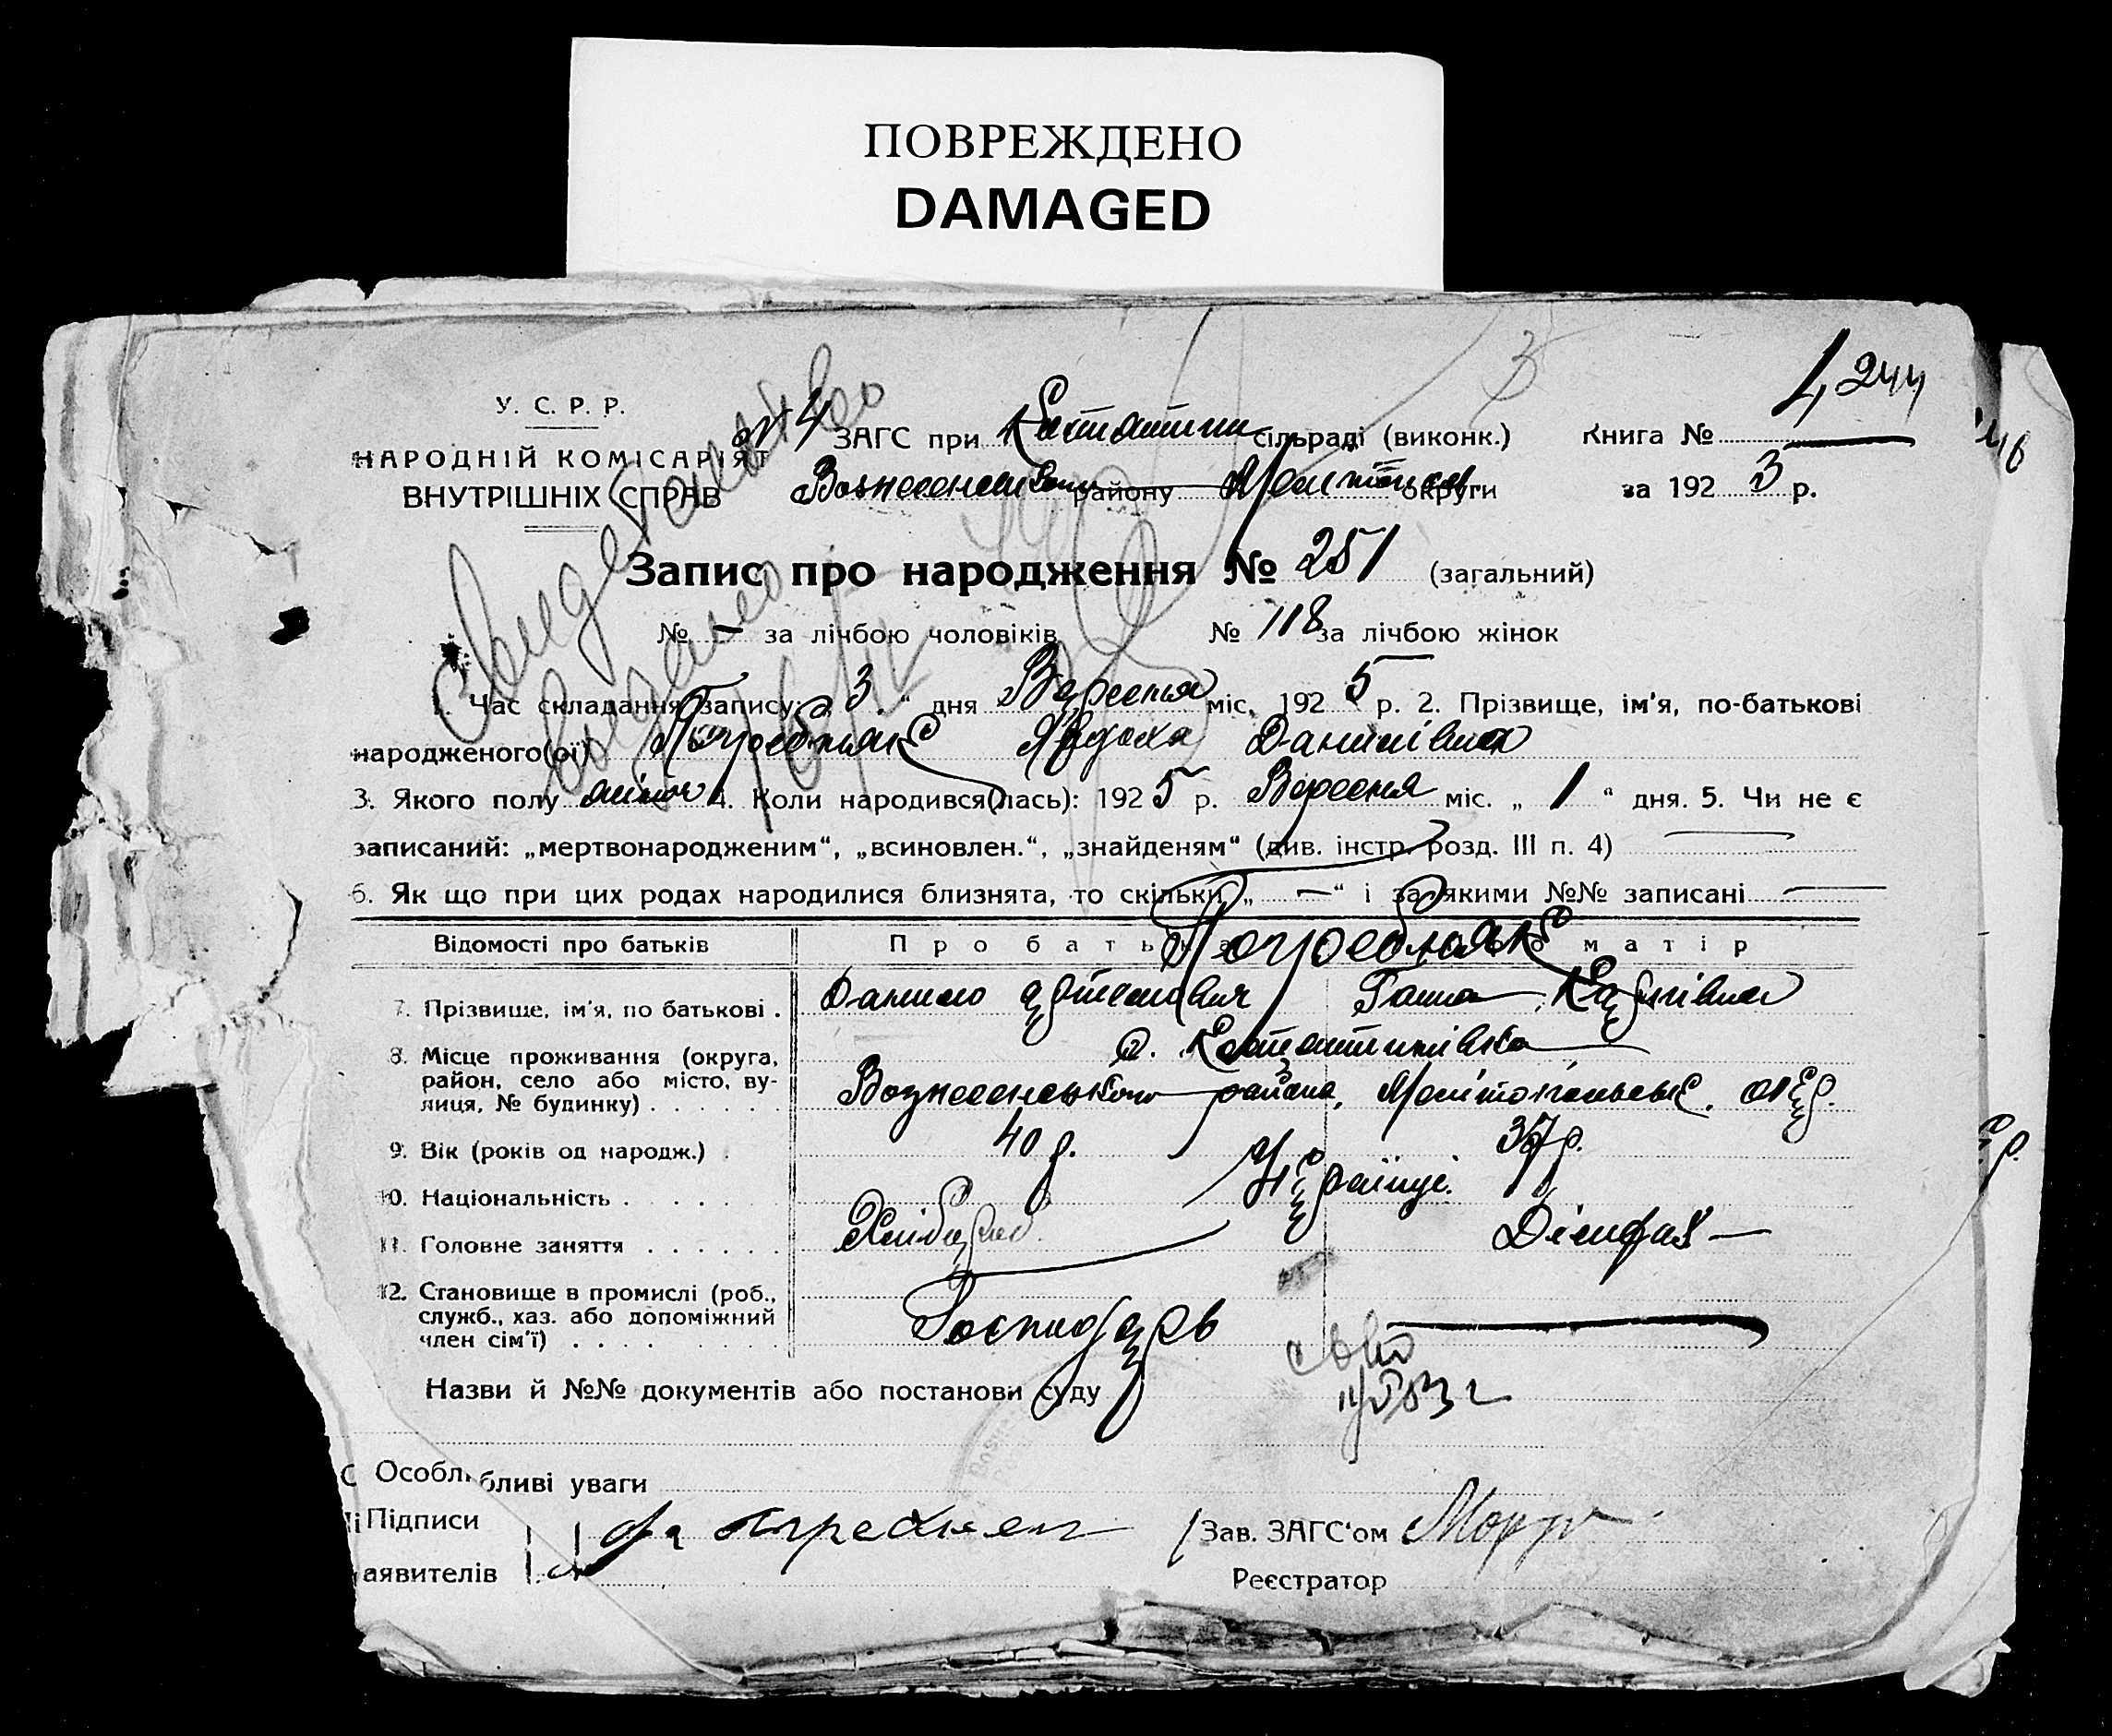 ПОВРЕЖДЕНО
DAMAGED
244
У. С. Р. Р.
№ 4 ЗАГС при сільраді (виконк.) Книга № 1
НАРОДНІЙ КОМІСАРІЯТ
ВНУТРІШНІХ СПРАВ
району округи за 192 5 р.
Запис про народження № 251 (загальний)
№ — за лічбою чоловіків № 118 за лічбою жінок
1. Час складання запису „ 3 “ дня Вересня міс. 192 5 р. 2. Прізвище, ім'я, по-батькові
народженого(ої) Погребняк Явдоха Данилівна
3. Якого полу жіноч 4. Коли народився(лась): 192 5 р. Вересня міс. „ 1 “ дня. 5. Чи не є
записаний: „мертвонародженим“, „всиновлен.“, „знайденям“ (див. інстр. розд. III п. 4) —
6. Як що при цих родах народилися близнята, то скільки „ — “ і за якими №№ записані —
Відомості про батьків Про батька Про матір
Погребняк
7. Прізвище, ім'я, по батькові . Данило Ганна
8. Місце проживання (округа, район, село або місто, вулиця, № будинку) . . . . . . с. Костянтинівка
Вознесенського району, Мелітопільськ. окр.
9. Вік (років од народж.) . 40 р. 37 р.
10. Національність . . . . . Українці.
11. Головне заняття . . . . . .
12. Становище в промислі (роб.,
служб., хаз. або допоміжний
член сім'ї) . . . . Господарь —
Назви й №№ документів або постанови суду
Особл
бливі уваги
Підписи Зав. ЗАГС'ом
аявителів Реєстратор